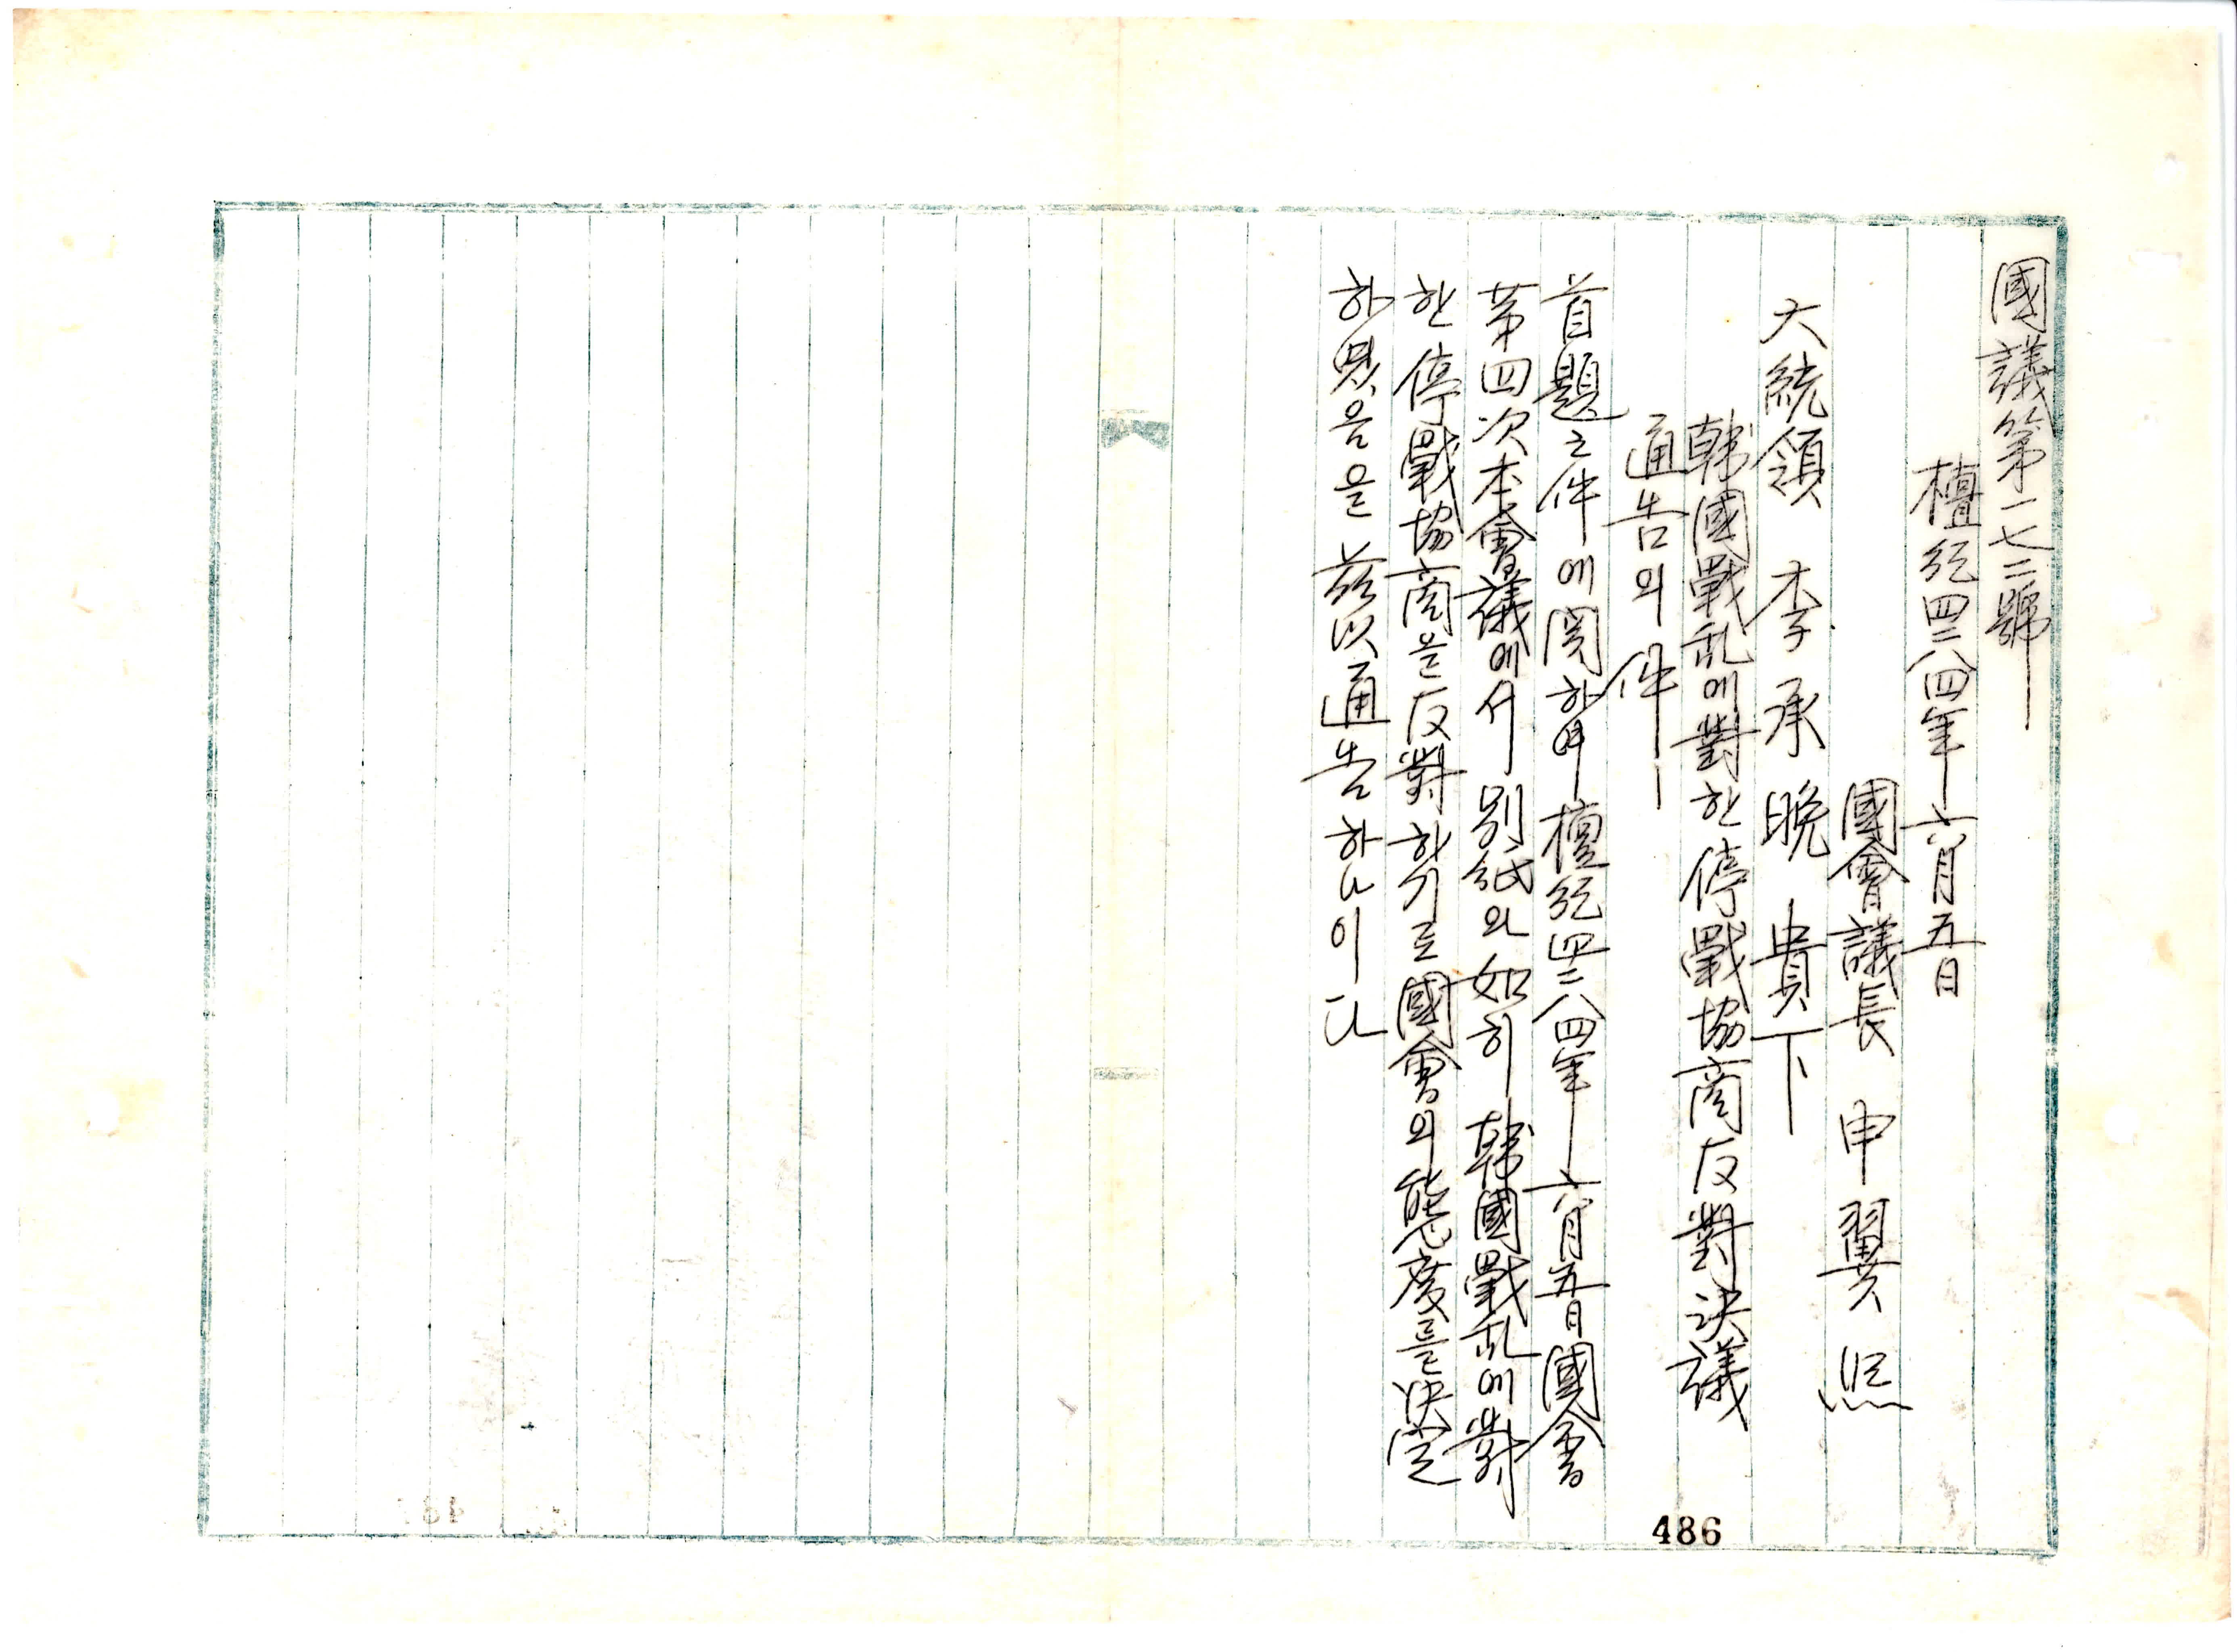 國議第一七二號
檀紀四二八四年六月五日
國會議長 申翼熙
大統領 李承晩 貴下
韓國戰乱에對한停戰協商反對決議
通告의件
首題之件에関하야檀紀四二八四年六月五日國會
第四次本會議에서別紙와如히韓國戰乱에對
한停戰協商을反對하기로國會의態度를決定
하였음을玆以通告하나이다
486